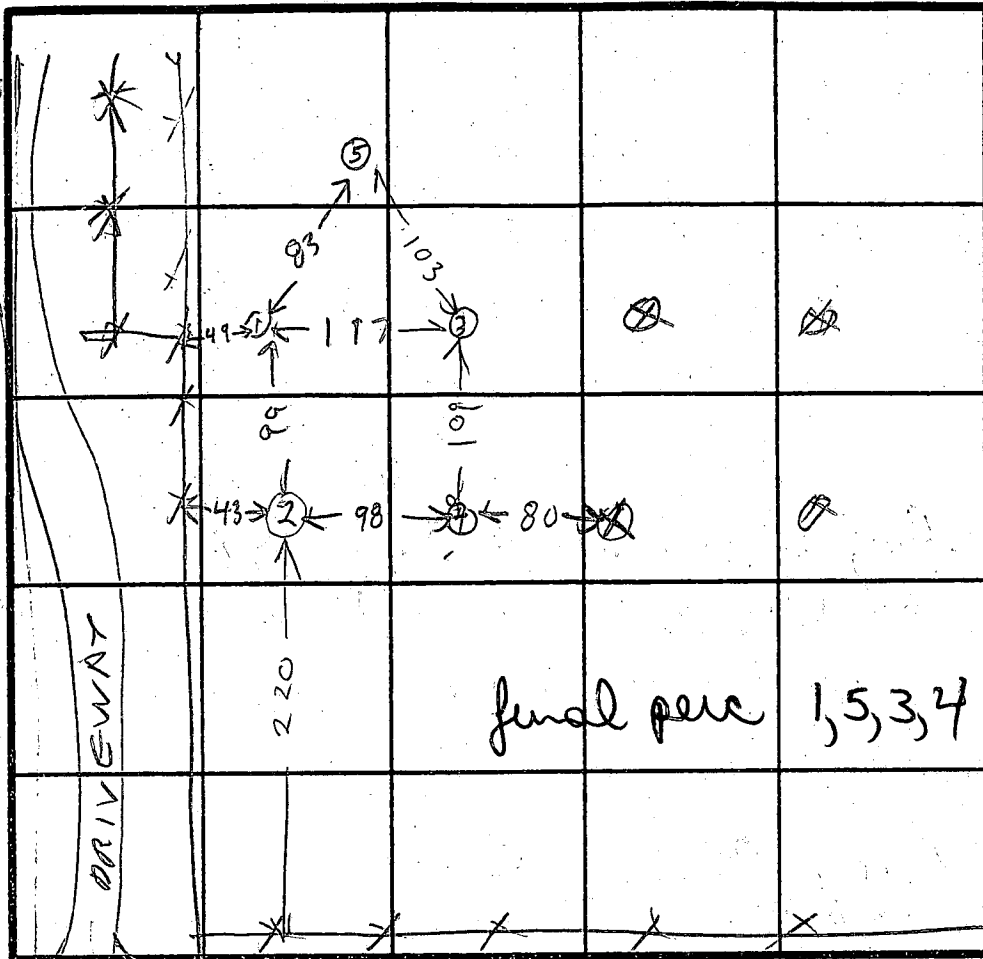 5
83
103
49
1
117
3
99
109
43
2
98
4
80
220
DRIVEWAY
final perc 1,5,3,4